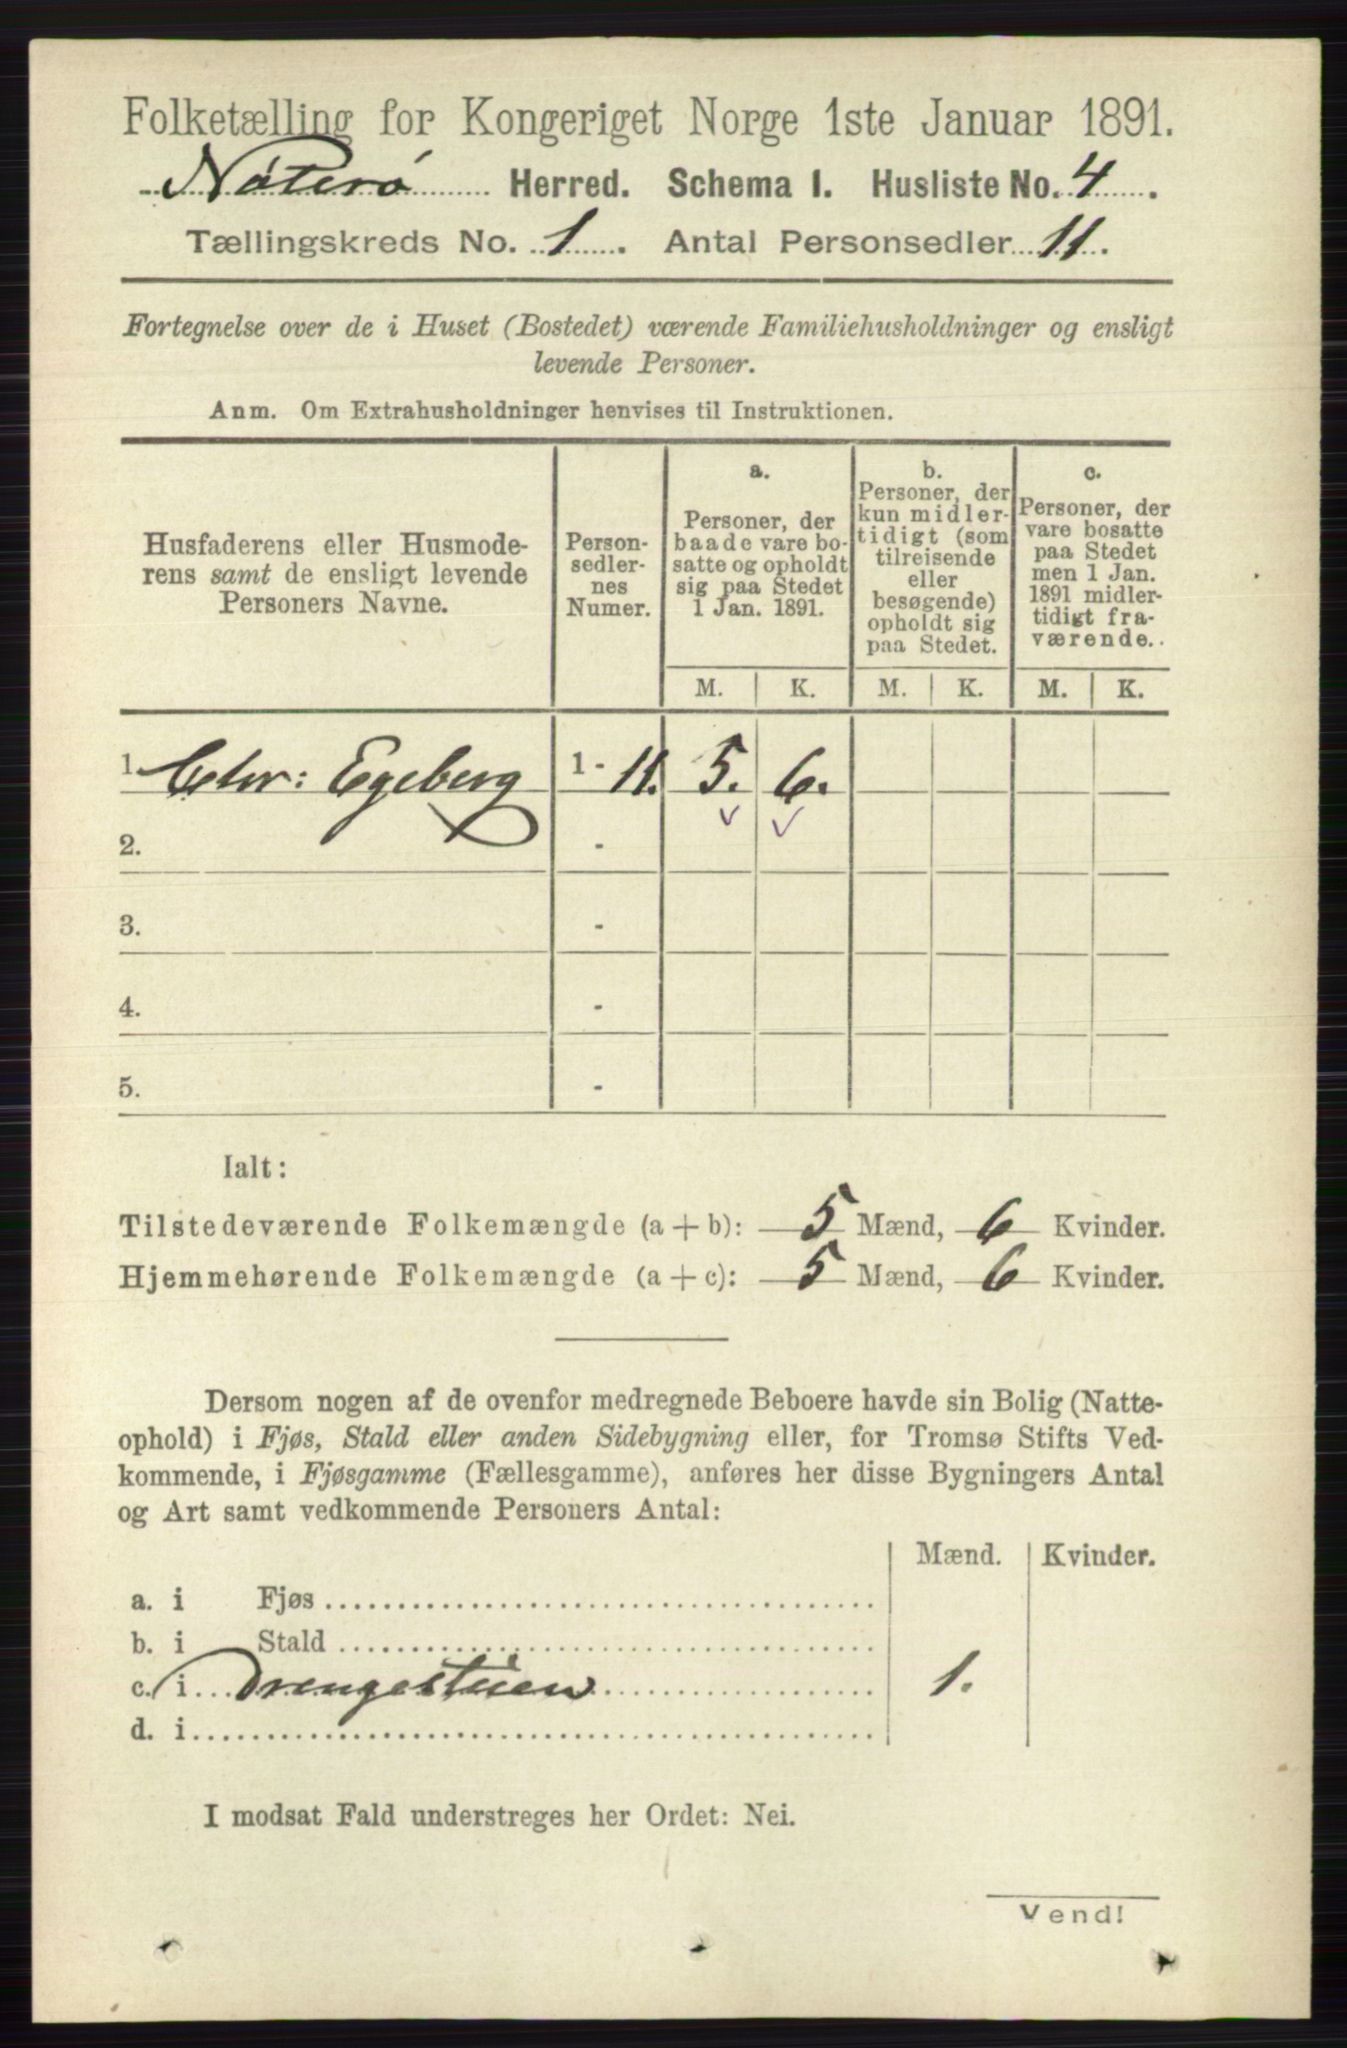 Folketælling for Kongeriget Norge 1ste Januar 1891.
Nøterø Herred. Schema I. Husliste No. 4.
Tællingskreds No. 1. Antal Personsedler 11.
Fortegnelse over de i Huset (Bostedet) værende Familiehusholdninger og ensligt
levende Personer.
Anm. Om Extrahusholdninger henvises til Instruktionen.
Husfaderens eller Husmode-
rens samt de ensligt levende
Personers Navne.
Person-
sedler-
nes
Numer.
a.
Personer, der
baade vare bo-
satte og opholdt
sig paa Stedet
1 Jan. 1891.
b.
Personer, der
kun midler-
tidigt (som
tilreisende
eller
besøgende)
opholdt sig
paa Stedet.
c.
Personer, der
vare bosatte
paa Stedet
men 1 Jan.
1891 midler-
tidigt fra-
værende.
M. K. M. K. M. K.
1. Chr: Egeberg 1 - 11. 5. 6.
2. -
3. -
4. -
5. -
Ialt:
Tilstedeværende Folkemængde (a + b): 5 Mænd, 6 Kvinder.
Hjemmehørende Folkemængde (a + c): 5 Mænd, 6 Kvinder.
Dersom nogen af de ovenfor medregnede Beboere havde sin Bolig (Natte-
ophold) i Fjøs, Stald eller anden Sidebygning eller, for Tromsø Stifts Ved-
kommende, i Fjøsgamme (Fællesgamme), anføres her disse Bygningers Antal
og Art samt vedkommende Personers Antal:
Mænd. Kvinder.
a. i Fjøs
b. i Stald
c. i Drengestuen 1.
d. i
I modsat Fald understreges her Ordet: Nei.
Vend!